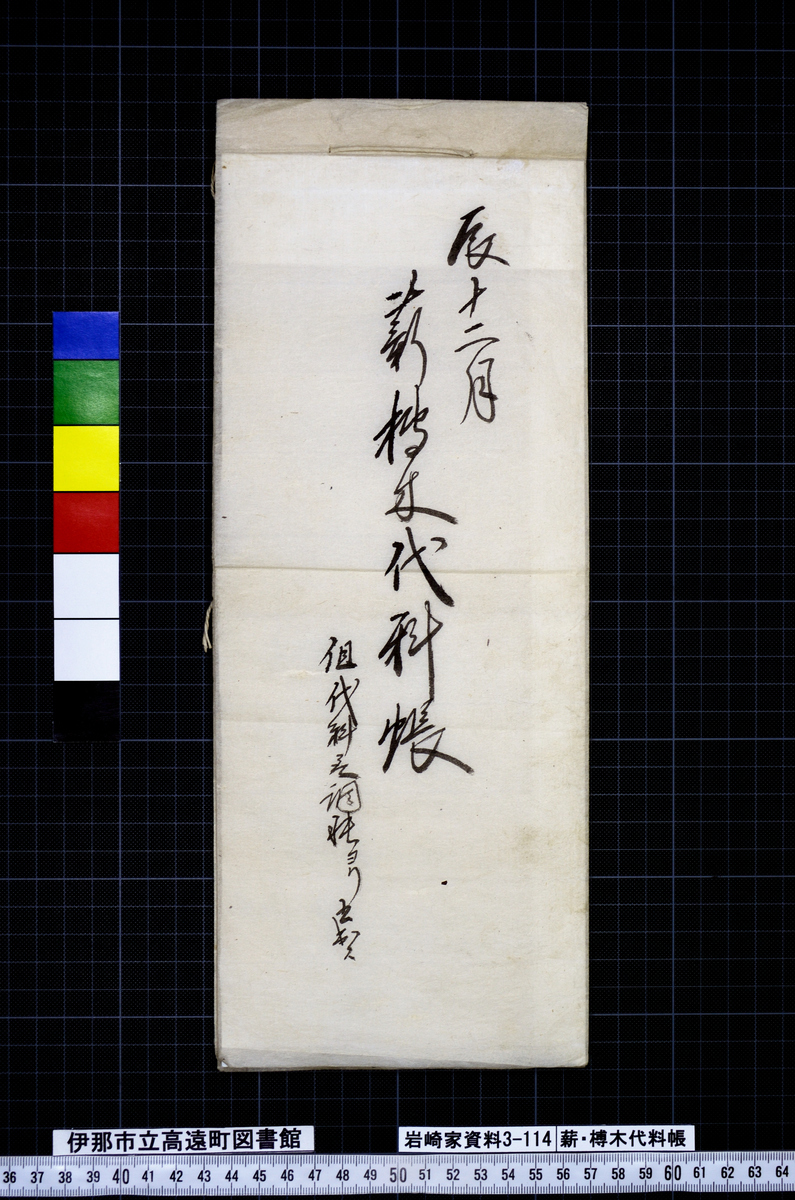 辰十二月
薪榑木代料帳
但代料之調帳ゟ
伊那市立高遠町図書館
岩崎家資料3-114
薪・榑木代料帳
36 37 38 39 40 41 42 43 44 45 46 47 48 49 50 51 52 53 54 55 56 57 58 59 60 61 62 63 64